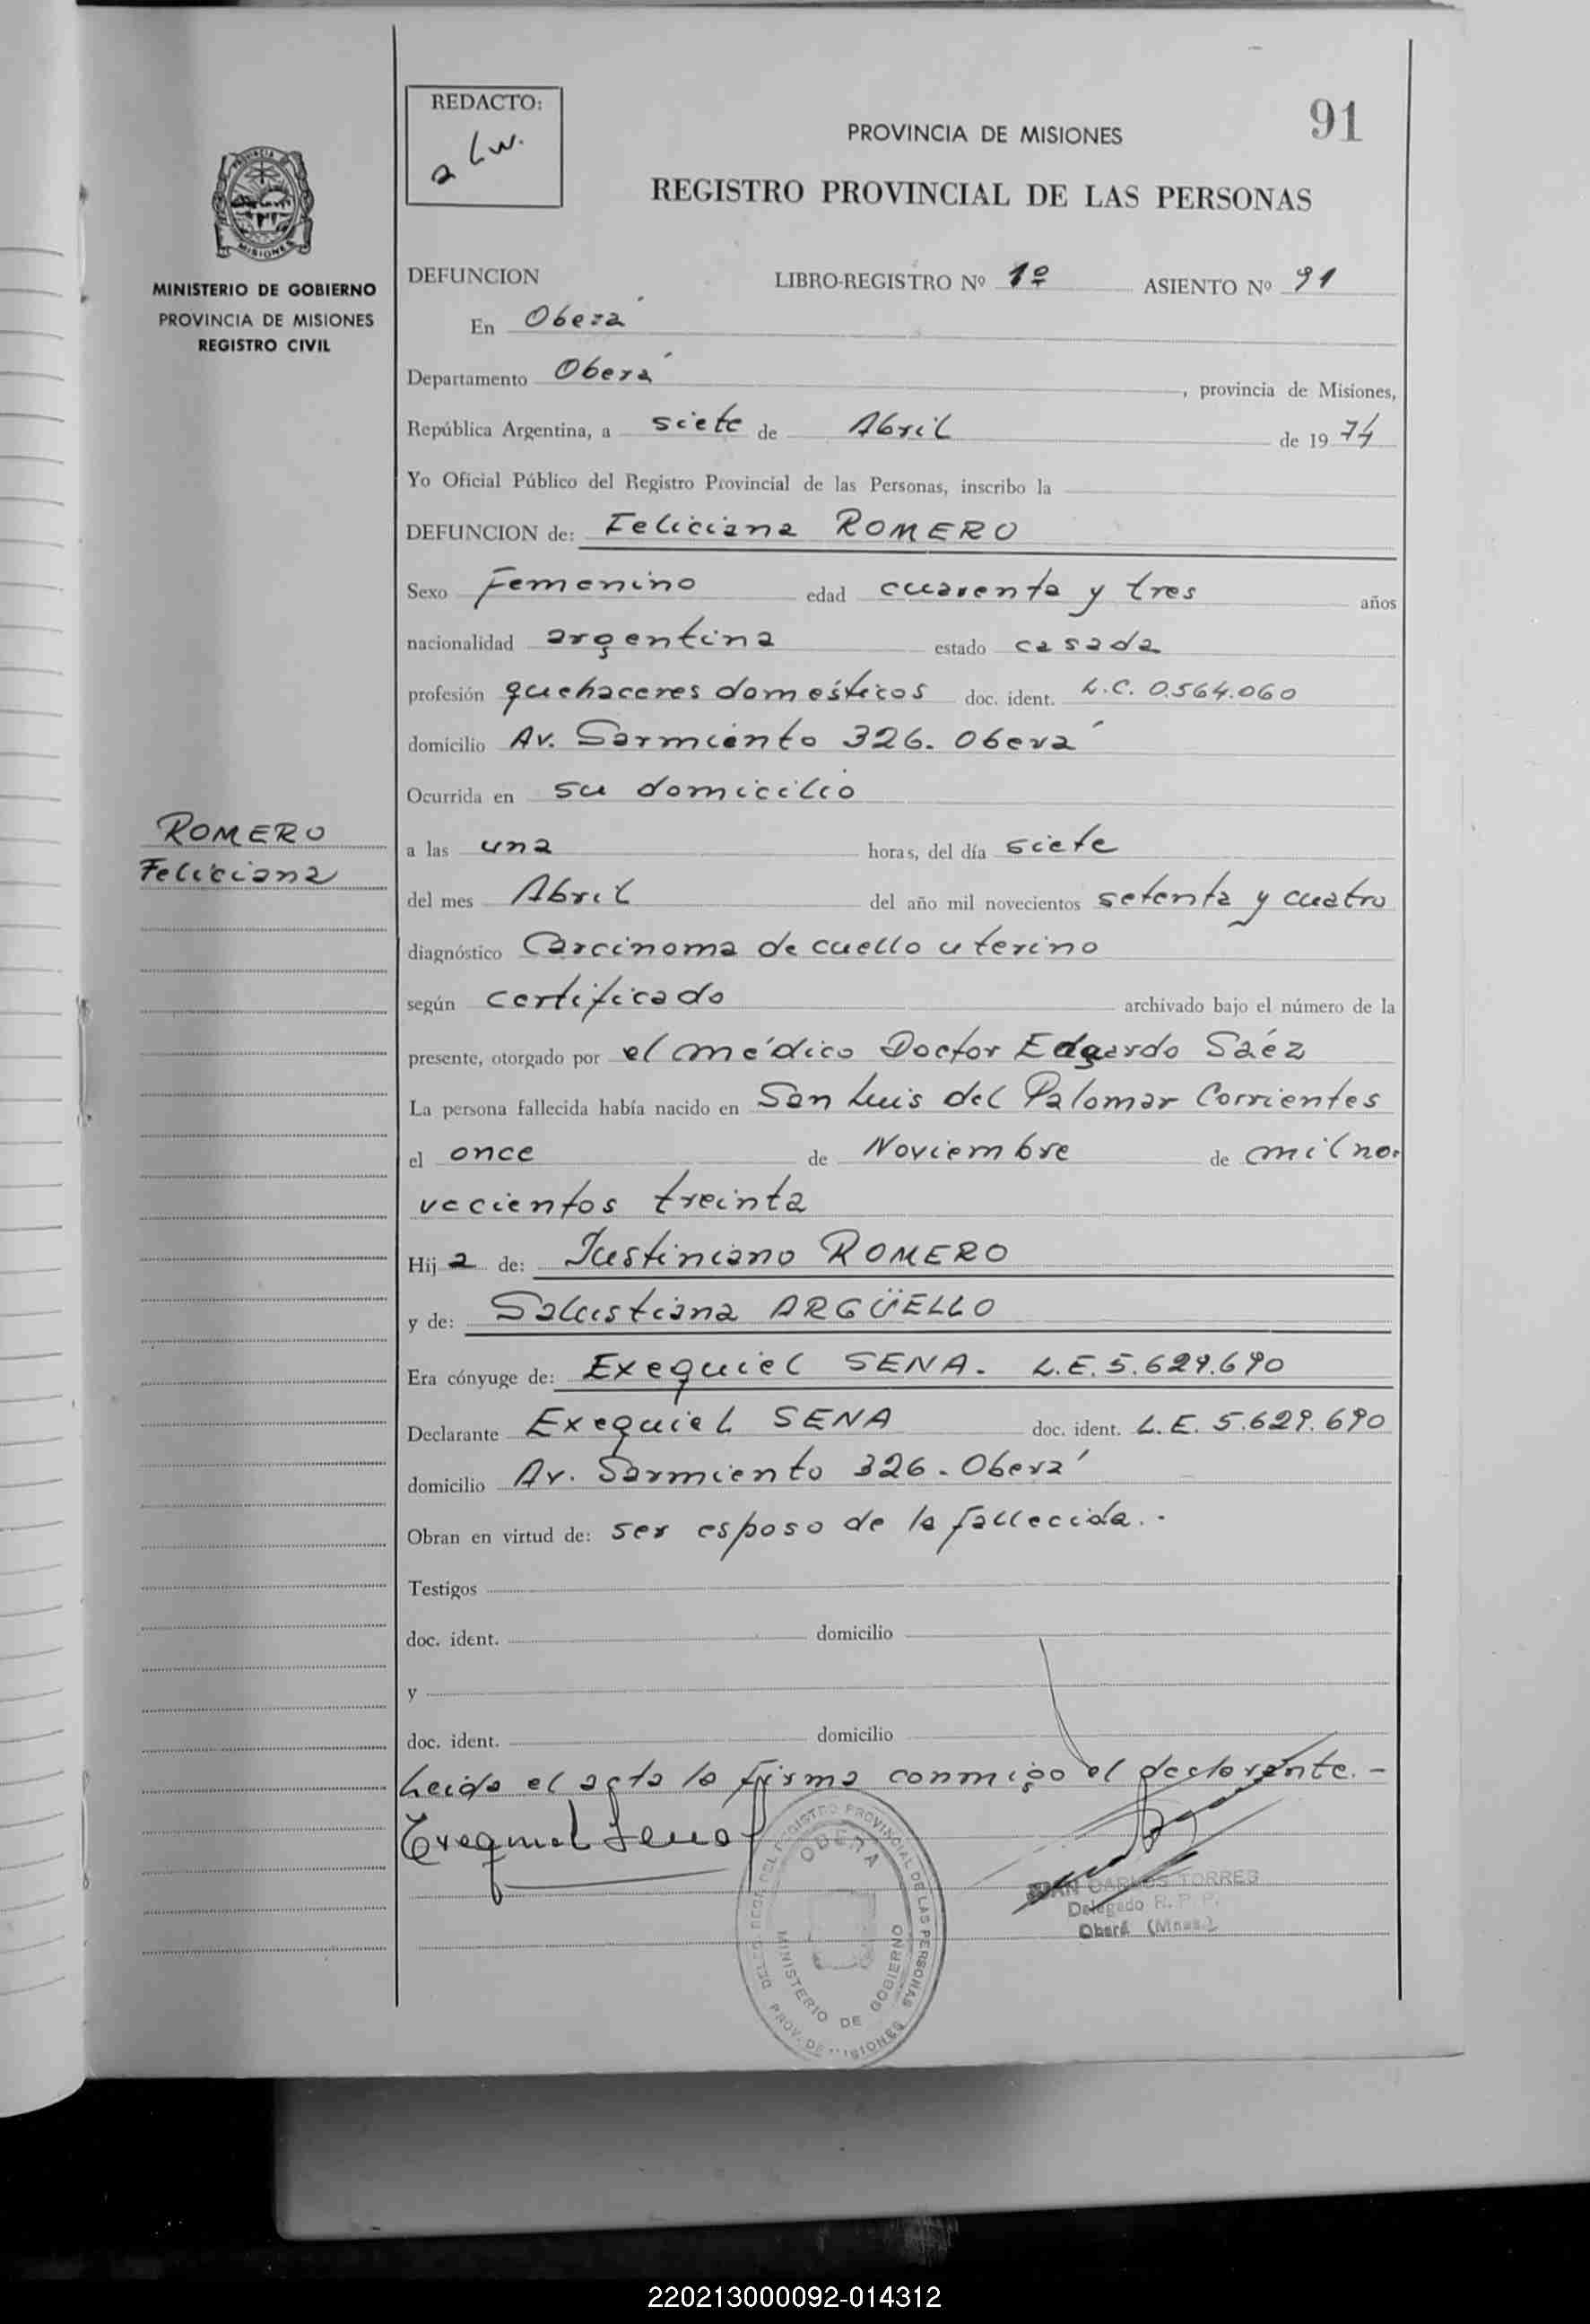 REDACTO:
a Lw.
91
PROVINCIA DE MISIONES
REGISTRO PROVINCIAL DE LAS PERSONAS
PROVINCIA DE
MISIONES
MINISTERIO DE GOBIERNO
PROVINCIA DE MISIONES
REGISTRO CIVIL
ROMERO
Feliciana
DEFUNCION LIBRO-REGISTRO Nº 1º ASIENTO Nº 91
En Oberá
Departamento Oberá, provincia de Misiones,
República Argentina, a siete de Abril de 1974
Yo Oficial Público del Registro Provincial de las Personas, inscribo la
DEFUNCION de: Feliciana ROMERO
Sexo Femenino edad cuarenta y tres años
nacionalidad argentina estado casada
profesión quehaceres domésticos doc. ident. L.C. 0.564.060
domicilio Av. Sarmiento 326. Oberá
Ocurrida en su domicilio
a las una horas, del día siete
del mes Abril del año mil novecientos setenta y cuatro
diagnóstico Carcinoma de cuello uterino
según certificado archivado bajo el número de la
presente, otorgado por el médico Doctor Edgardo Saéz
La persona fallecida había nacido en San Luis del Palomar Corrientes
el once de Noviembre de mil no-
vecientos treinta
Hija de: Justiniano ROMERO
y de: Salustiana ARGÜELLO
Era cónyuge de: Exequiel SENA. L.E. 5.629.690
Declarante Exequiel SENA doc. ident. L.E. 5.629.690
domicilio Av. Sarmiento 326. Oberá
Obran en virtud de: ser esposo de la fallecida.-
Testigos
doc. ident. domicilio
y
doc. ident. domicilio
Leida el acta la firma conmigo el declarante.-
Exequiel Sena
REGISTRO PROVINCIAL DE LAS PERSONAS
OBERA
MINISTERIO DE GOBIERNO
PROV. DE MISIONES
JUAN CARLOS TORRES
Delegado R. P. P.
Oberá (Mnes.)
220213000092-014312